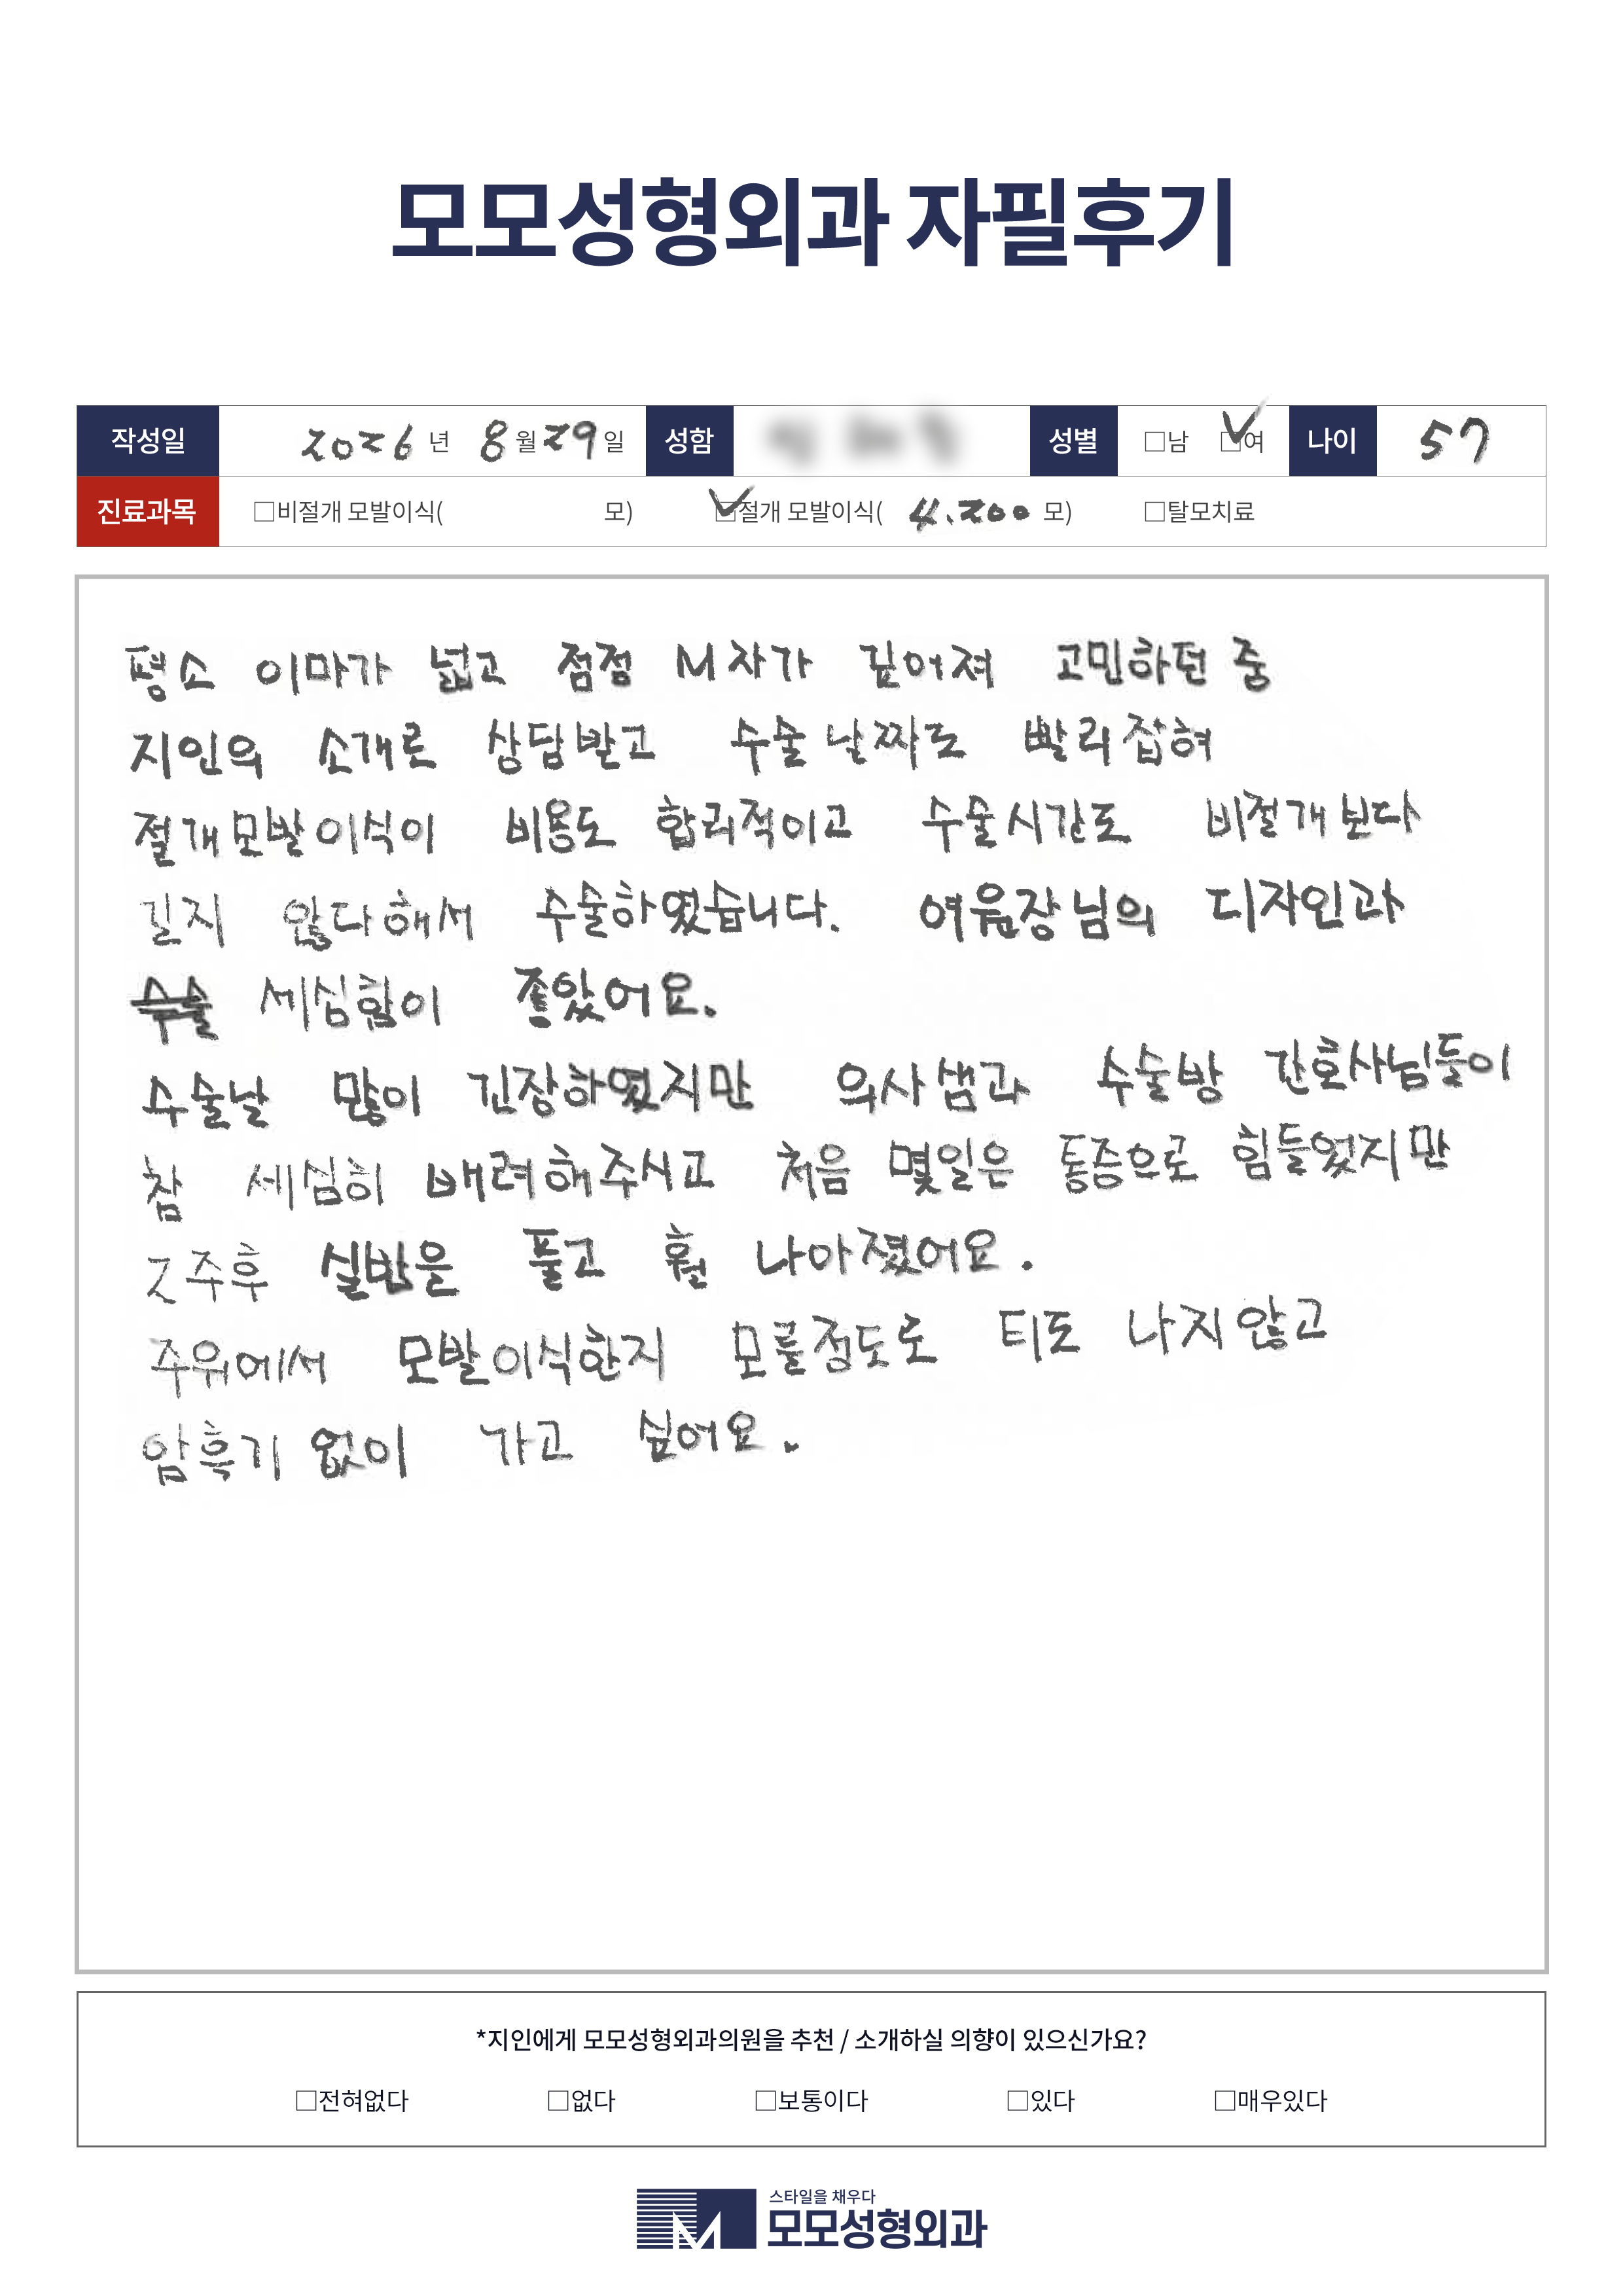 모모성형외과 자필후기
작성일 2026 년 8 월 29 일 성함 성별 □남 □여 나이 57
진료과목 □비절개 모발이식( 모) □절개 모발이식( 4.200 모) □탈모치료
평소 이마가 넓고 점점 M자가 깊어져 고민하던 중
지인의 소개로 상담받고 수술 날짜도 빨리 잡혀
절개모발이식이 비용도 합리적이고 수술시간도 비절개보다
길지 않다해서 수술하였습니다. 여유원장님의 디자인과
수술 세심함이 좋았어요.
수술날 많이 긴장하였지만 의사샘과 수술방 간호사님들이
참 세심히 배려해주시고 처음 몇일은 통증으로 힘들었지만
2주후 실밥을 풀고 훨 나아졌어요.
주위에서 모발이식한지 모를정도로 티도 나지 않고
암흑기 없이 가고 싶어요.
*지인에게 모모성형외과의원을 추천 / 소개하실 의향이 있으신가요?
□전혀없다 □없다 □보통이다 □있다 □매우있다
스타일을 채우다
모모성형외과